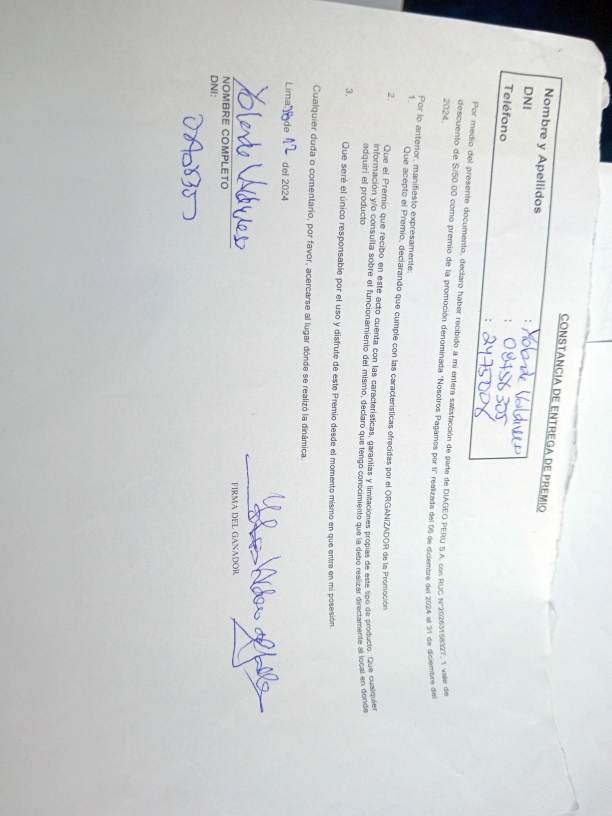 CONSTANCIA DE ENTREGA DE PREMIO
Nombre y Apellidos : Yolande Valdivieso
DNI : 08458305
Teléfono : 2475008
Por medio del presente documento, declaro haber recibido a mi entera satisfacción de parte de DIAGEO PERU S.A. con RUC N°20263158327, 1 vale de
descuento de S/50.00 como premio de la promoción denominada "Nosotros Pagamos por ti" realizada del 06 de diciembre del 2024 al 31 de diciembre del
2024.
Por lo anterior, manifiesto expresamente:
1. Que acepto el Premio, declarando que cumple con las características ofrecidas por el ORGANIZADOR de la Promoción
2. Que el Premio que recibo en este acto cuenta con las características, garantías y limitaciones propias de este tipo de producto. Que cualquier
información y/o consulta sobre el funcionamiento del mismo, declaro que tengo conocimiento que la debo realizar directamente al local en donde
adquirí el producto
3. Que seré el único responsable por el uso y disfrute de este Premio desde el momento mismo en que entre en mi posesión.
Cualquier duda o comentario, por favor, acercarse al lugar donde se realizó la dinámica.
Lima, de 12 del 2024
Yolande Valdivieso
NOMBRE COMPLETO
FIRMA DEL GANADOR
DNI:
08458305